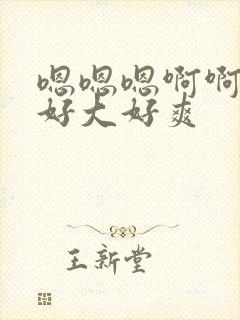 嗯嗯嗯啊啊
好大好爽
王新堂